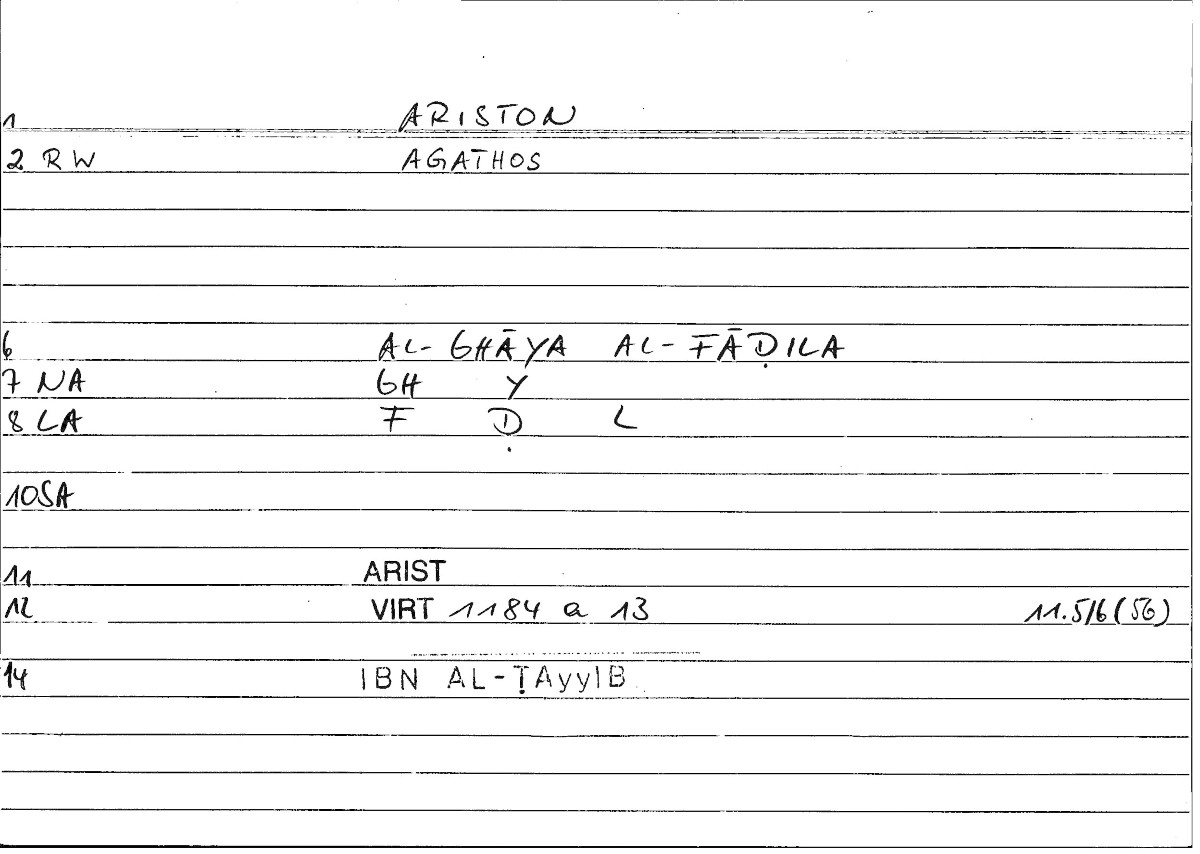 1 ARISTON
2 RW AGATHOS
6 AL-GHĀYA AL-FĀḌILA
7 NA GH Y
8 LA F Ḍ L
10SA
11 ARIST
12 VIRT 1184 a 13 11.5/6(56)
14 IBN AL-ṬAyyIB